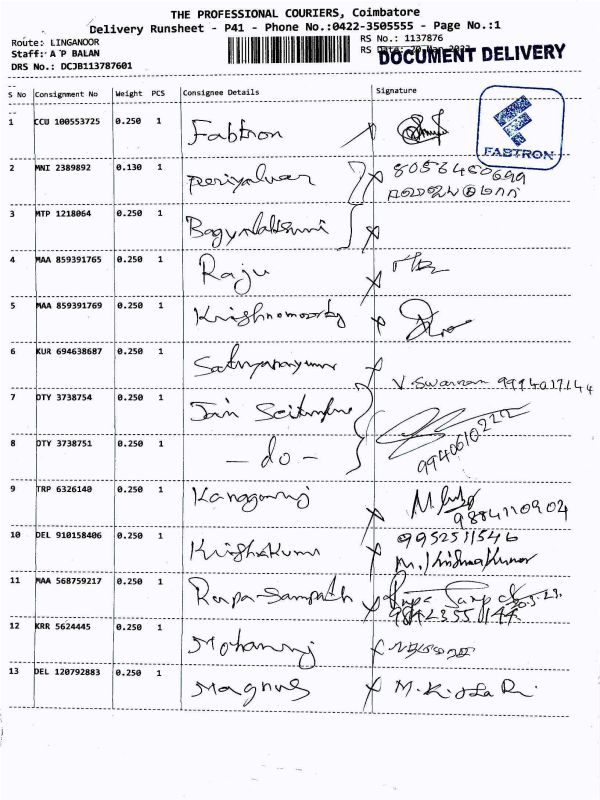 THE PROFESSIONAL COURIERS, Coimbatore
Delivery Runsheet - P41 - Phone No.:0422-3505555 - Page No.:1
Route: LINGANOOR
RS No.: 1137876
Staff: A P BALAN
RS Date: 20 Mar 2023
DOCUMENT DELIVERY
DRS No.: DCJB113787601
S No Consignment No Weight PCS Consignee Details Signature
1 CCU 100553725 0.250 1 Fabtron
FABTRON
2 MNI 2389892 0.130 1 Periyalwar 8056460699
3 MTP 1218064 0.250 1 Bagyalakshmi
4 MAA 859391765 0.250 1 Raju
5 MAA 859391769 0.250 1 Krishnamoorthy
6 KUR 694638687 0.250 1 Sathyanarayanan
V. Swarnan 9994017144
7 OTY 3738754 0.250 1 Jain
8 OTY 3738751 0.250 1 - do - 9940610222
9 TRP 6326140 0.250 1 Kanggaraj
9884110902
10 DEL 910158406 0.250 1 Krishnakumar 9952511546
M. Krishnakumar
11 MAA 568759217 0.250 1 Rupa-Sampath Rupa Sampath 20.3.23.
9842355144
12 KRR 5624445 0.250 1 Mohanraj
13 DEL 120792883 0.250 1 Magnus